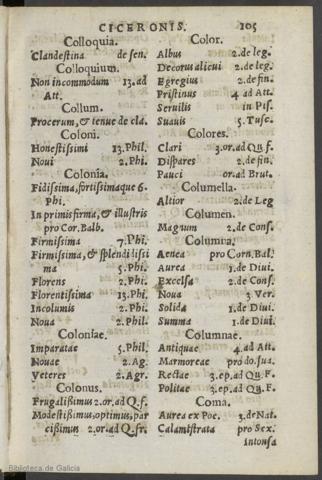 CICERONIS. 105
Colloquia.
Clandestina de sen.
Colloquium.
Non incommodum 13. ad
Att.
Collum.
Procerum, & tenue de cla.
Coloni.
Honestissimi 13. Phil.
Noui 2. Phi.
Colonia.
Fidissima, fortissimaque 6.
Phi.
In primis firma, & illustris
pro Cor. Balb.
Firmissima 7. Phi.
Firmissima, & splendidissi
ma 5. Phi.
Florens 2. Phi.
Florentissima 13. Phi.
Incolumis 2. Phi.
Noua 2. Phil.
Coloniae.
Imparatae 5. Phil.
Nouae 2. Ag.
Veteres 2. Agr.
Colonus.
Frugalissimus 2. or. ad Q. f.
Modestissimus, optimus, par
cissimus 2. or. ad Q. fr.
Color.
Albus 2. de leg.
Decorus alicui 2. de leg.
Egregius 2. de fin.
Pristinus 4. ad Att.
Seruilis in Pis.
Suauis 5. Tusc.
Colores.
Clari 3. or. ad Qu. F.
Dispares 2. de fin.
Pauci or. ad Brut.
Columella.
Altior 2. de Leg
Columen.
Magnum 2. de Cons.
Columna.
Aenea pro Corn. Bal.
Aurea 1. de Diui.
Excelsa 2. de Cons.
Noua 3. Ver.
Solida 1. de Diui.
Summa 1. de Diui.
Columnae.
Antiquae 4. ad Att.
Marmoreae pro do. sua.
Rectae 3. ep. ad Qu. F.
Politae 3. ep. ad Qu. F.
Coma.
Aurea ex Poe. 3. de Nat.
Calamistrata pro Sex.
intonsa
Biblioteca de Galicia